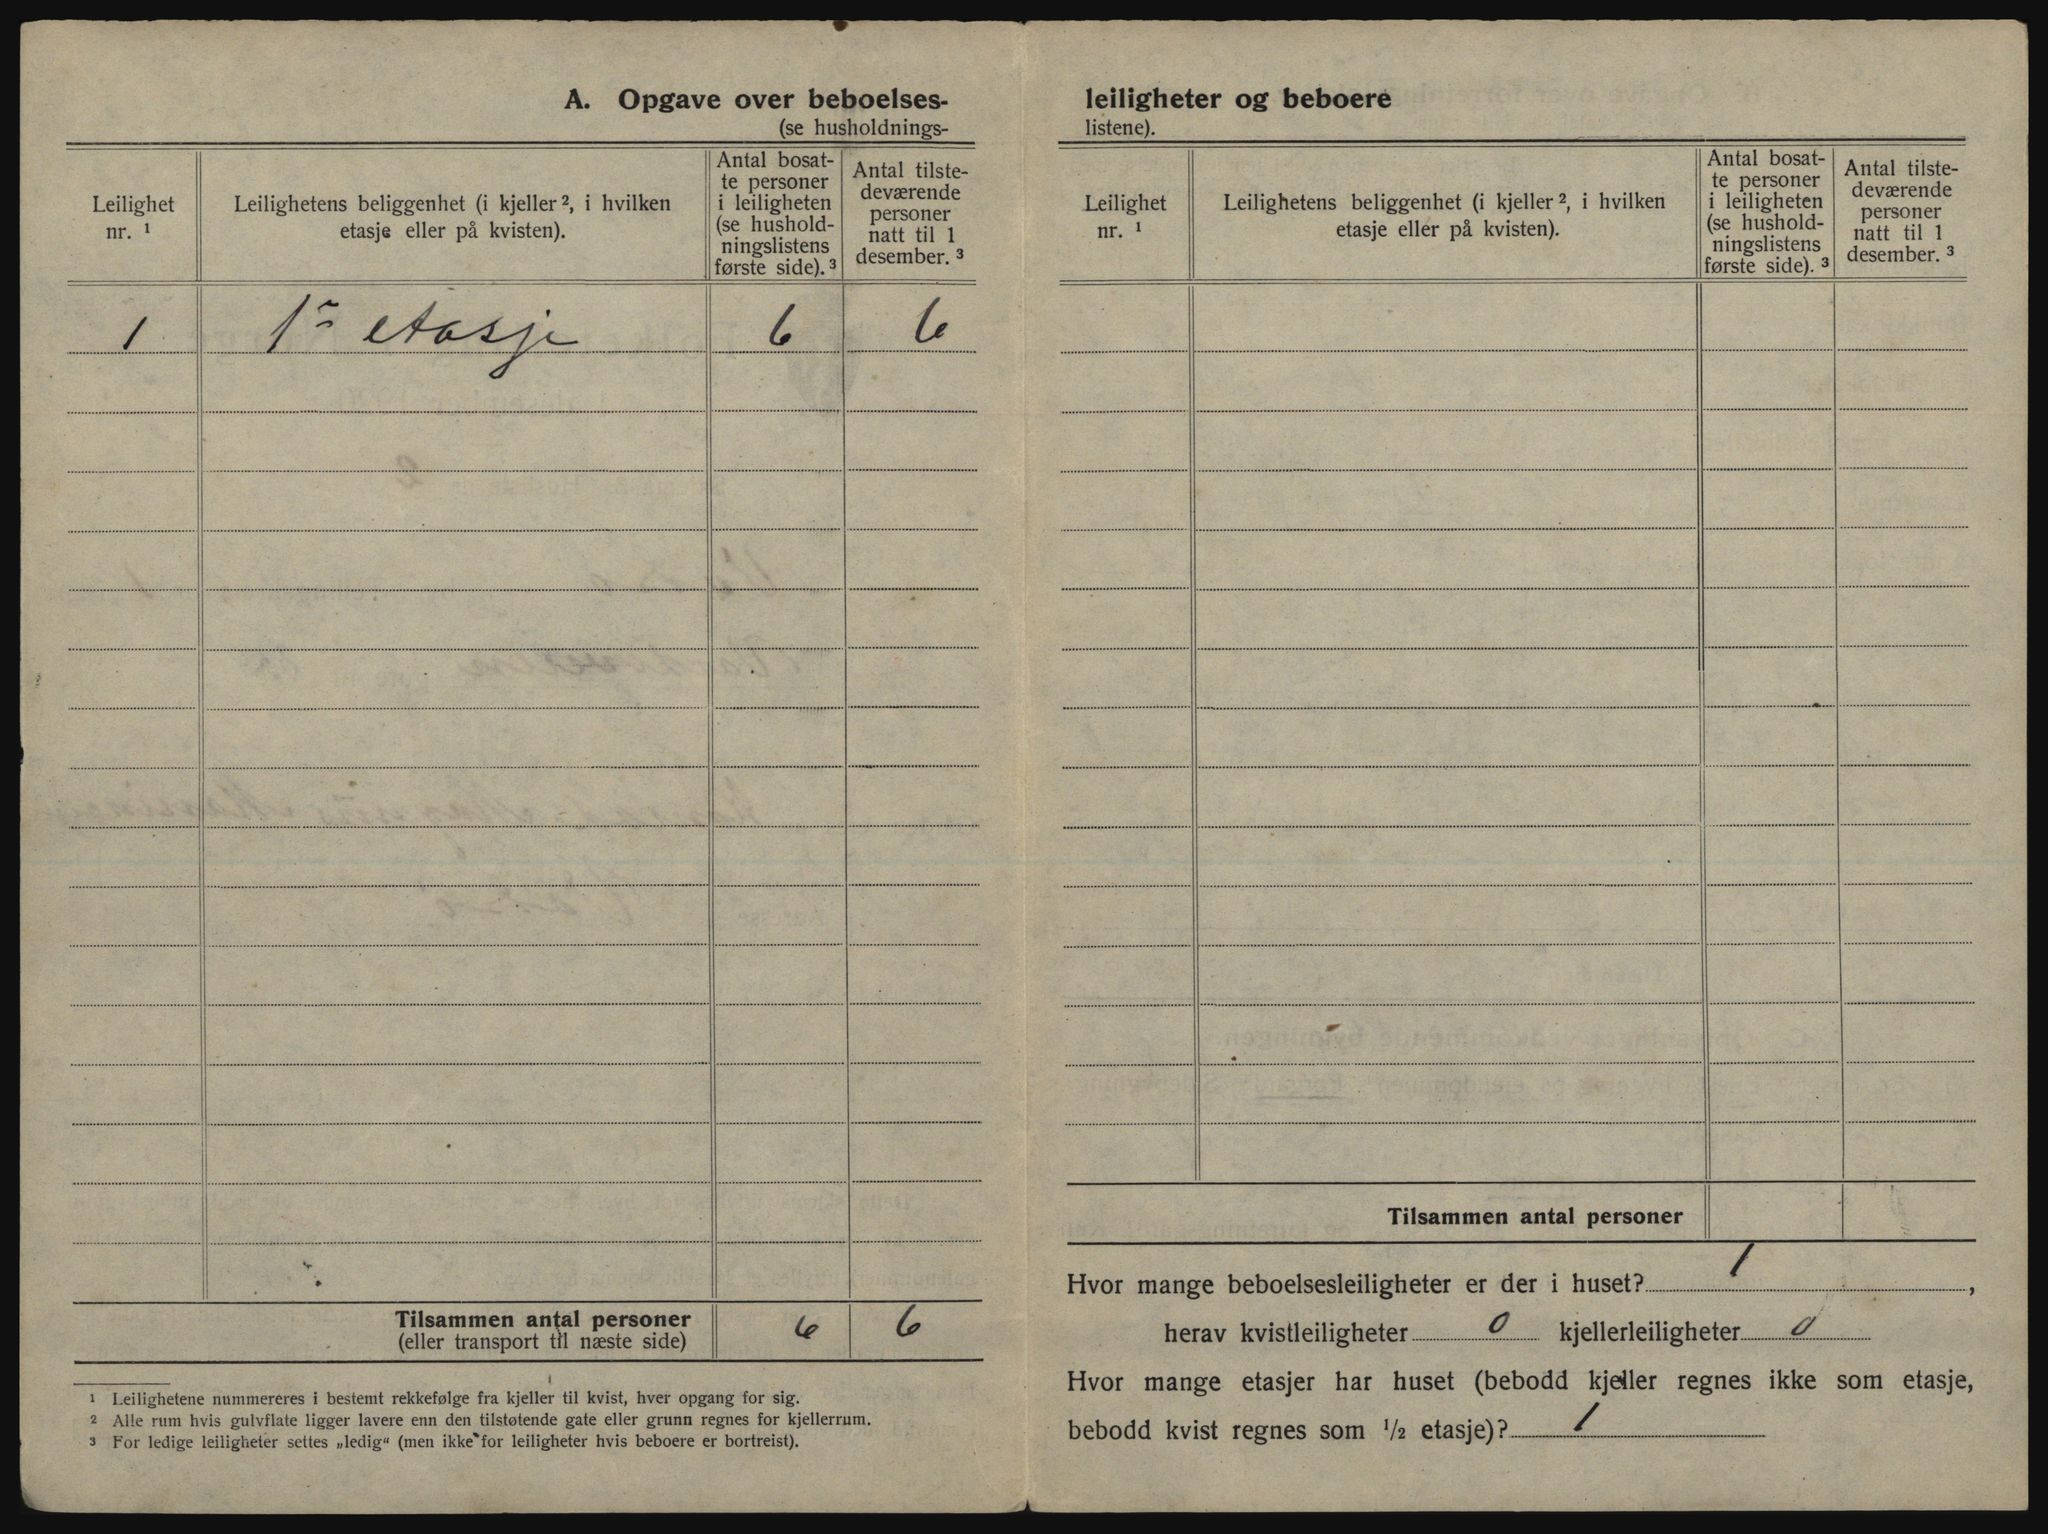 A. Opgave over beboelses-
(se husholdnings-
Leilighet
nr. ¹
Leilighetens beliggenhet (i kjeller ², i hvilken
etasje eller på kvisten).
Antal bosat-
te personer
i leiligheten
(se hushold-
ningslistens
første side). ³
Antal tilste-
deværende
personer
natt til 1
desember. ³
1 1ᵉ etasje 6 6
Tilsammen antal personer 6 6
(eller transport til næste side)
¹ Leilighetene nummereres i bestemt rekkefølge fra kjeller til kvist, hver opgang for sig.
² Alle rum hvis gulvflate ligger lavere enn den tilstøtende gate eller grunn regnes for kjellerrum.
³ For ledige leiligheter settes „ledig“ (men ikke for leiligheter hvis beboere er bortreist).
leiligheter og beboere
listene).
Leilighet
nr. ¹
Leilighetens beliggenhet (i kjeller ², i hvilken
etasje eller på kvisten).
Antal bosat-
te personer
i leiligheten
(se hushold-
ningslistens
første side). ³
Antal tilste-
deværende
personer
natt til 1
desember. ³
Tilsammen antal personer
Hvor mange beboelsesleiligheter er der i huset? 1,
herav kvistleiligheter 0 kjellerleiligheter 0
Hvor mange etasjer har huset (bebodd kjeller regnes ikke som etasje,
bebodd kvist regnes som ½ etasje)? 1